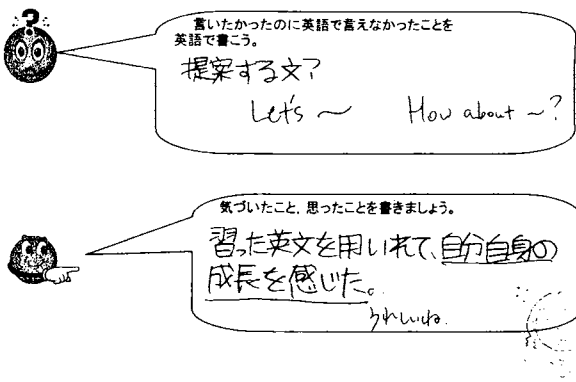 言いたかったのに英語で言えなかったことを
英語で書こう。
提案する文?
Let's ～ How about ～?
気づいたこと、思ったことを書きましょう。
習った英文を用いれて、自分自身の
成長を感じた。
うれしいね.